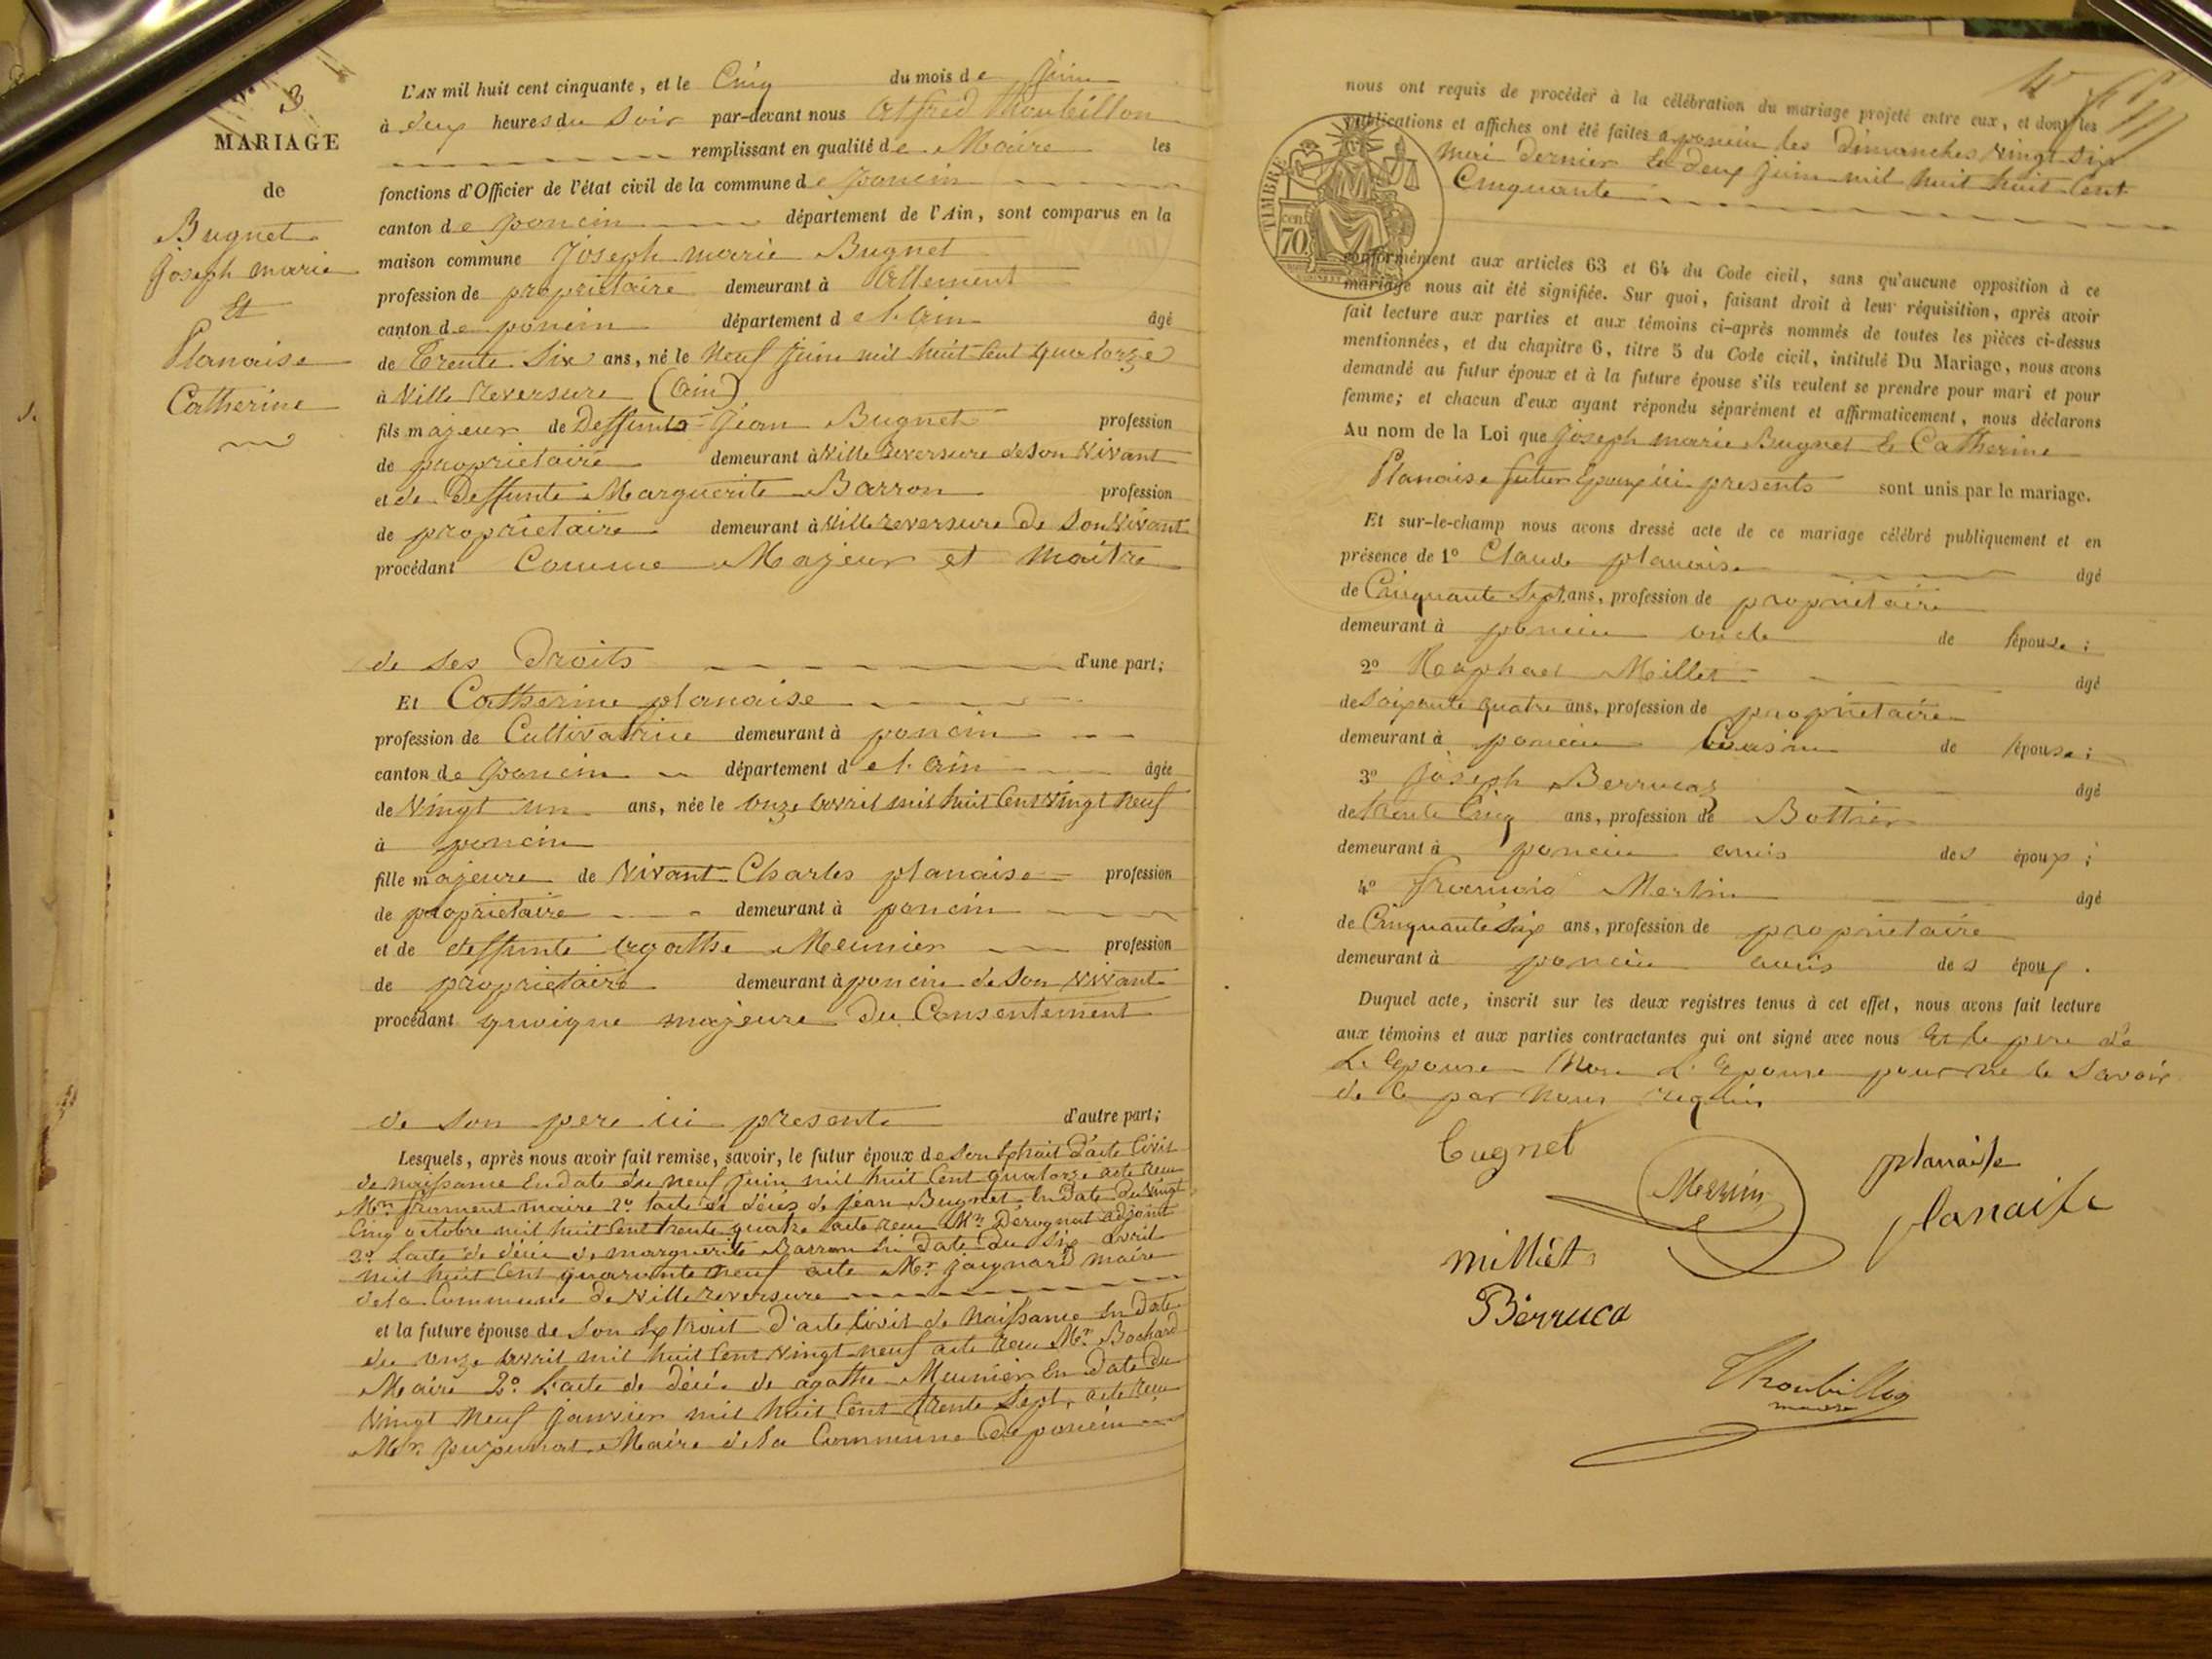 N° 3
MARIAGE
de
Bugnet
Joseph marie
Et
Planaise
Catherine
L'AN mil huit cent cinquante, et le Cinq du mois de Juin
à deux heures du Soir par-devant nous Alfred Thoubillon
remplissant en qualité de Maire les
fonctions d'Officier de l'état civil de la commune de poncin
canton de poncin département de l'Ain, sont comparus en la
maison commune Joseph marie Bugnet
profession de propriétaire demeurant à Allement
canton de poncin département de l'ain âgé
de Trente Six ans, né le neuf Juin mil huit Cent quatorze
à Ville reversure (Ain)
fils majeur de Deffunts Jean Bugnet profession
de propriétaire demeurant à Ville reversure de son Vivant
et de Deffunte Marguerite Barron profession
de propriétaire demeurant à Ville reversure De Son Vivant
procédant Comme Majeur et Maître
de ses Droits d'une part;
Et Catherine planaise
profession de Cultivatrice demeurant à poncin
canton de poncin département de l'ain âgée
de Vingt un ans, née le onze avril mil huit Cent Vingt neuf
à poncin
fille majeure de Vivant Charles planaise profession
de propriétaire demeurant à poncin
et de deffunte agathe Meunier profession
de propriétaire demeurant à poncin de Son Vivant
procédant quoique majeure Du Consentement
de son pere ici present d'autre part;
Lesquels, après nous avoir fait remise, savoir, le futur époux de Son Extrait d'acte Civil
de naissance En date du neuf Juin mil huit Cent quatorze acte reçu
Mr frument maire 2° l'acte de décès de Jean Bugnet En Date du Vingt
Cinq octobre mil huit Cent trente quatre acte reçu Mr Dérognat adjoint
3° L'acte de décès de marguerite Barron En date Du Six avril
mil huit Cent quarante neuf acte Mr. Jaignard maire
de la Commune De Ville reversure
et la future épouse de Son Extrait D'acte Civil de Naissance En Date
du onze avril mil huit Cent Vingt neuf acte reçu Mr. Bochard
Maire 2°. L'acte de décès de agathe Meunier En Date Du
Vingt neuf janvier mil huit Cent trente Sept, acte reçu
Mr. Maire de la Commune De poncin
nous ont requis de procéder à la célébration du mariage projeté entre eux, et dont les
publications et affiches ont été faites a poncin les Dimanches Vingt Six
mai Dernier Et deux juin mil huit huit Cent
Cinquante
TIMBRE
cen.
70
conformément aux articles 63 et 64 du Code civil, sans qu'aucune opposition à ce
mariage nous ait été signifiée. Sur quoi, faisant droit à leur réquisition, après avoir
fait lecture aux parties et aux témoins ci-après nommés de toutes les pièces ci-dessus
mentionnées, et du chapitre 6, titre 5 du Code civil, intitulé Du Mariage, nous avons
demandé au futur époux et à la future épouse s'ils veulent se prendre pour mari et pour
femme; et chacun d'eux ayant répondu séparément et affirmativement, nous déclarons
Au nom de la Loi que Joseph marie Bugnet & Catherine
Planaise futur Epoux ici presents sont unis par le mariage.
Et sur-le-champ nous avons dressé acte de ce mariage célébré publiquement et en
présence de 1° Claude planaise âgé
de Cinquante Sept ans, profession de propriétaire
demeurant à poncin oncle de l'épouse;
2° Raphael Millet âgé
de Soixante quatre ans, profession de propriétaire
demeurant à poncin Cousin de l'épouse;
3° Joseph Berrucaz âgé
de trente Cinq ans, profession de Bottier
demeurant à poncin amis des époux;
4° francois Merlin âgé
de Cinquante Six ans, profession de propriétaire
demeurant à poncin amis des époux.
Duquel acte, inscrit sur les deux registres tenus à cet effet, nous avons fait lecture
aux témoins et aux parties contractantes qui ont signé avec nous Et le pere de
L'Epouse Non L'Epouse pour ne le Savoir
de Ce par Nous requis
bugnet
planaise
planaise
milliét
Bérruca
Thoubillon
maire